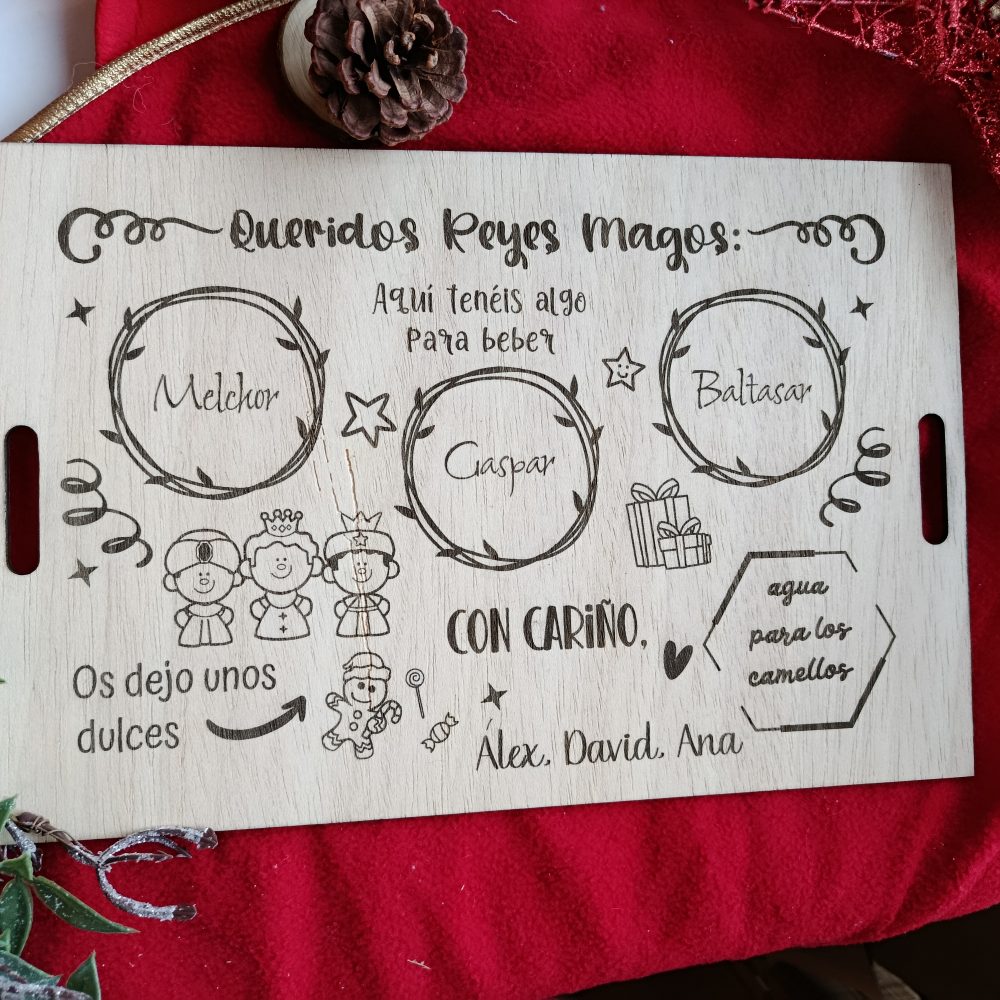 Queridos Reyes Magos:
Aquí tenéis algo
para beber
Melchor
Gaspar
Baltasar
Os dejo unos
dulces
CON CARIÑO,
Álex, David, Ana
agua
para los
camellos